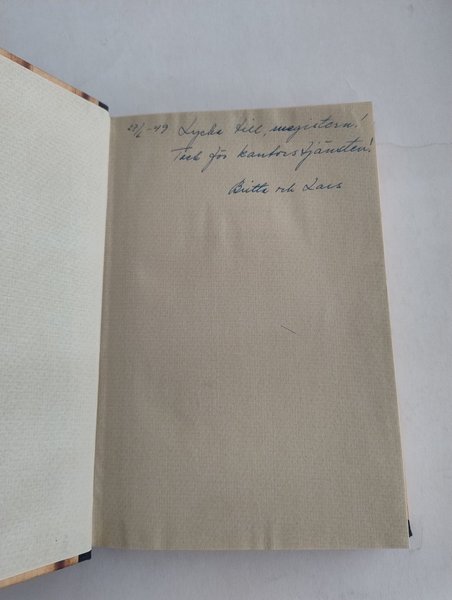 29/6 -49 Lycka till, magistern!
Tack för kantorstjänsten!
Britta och Lars